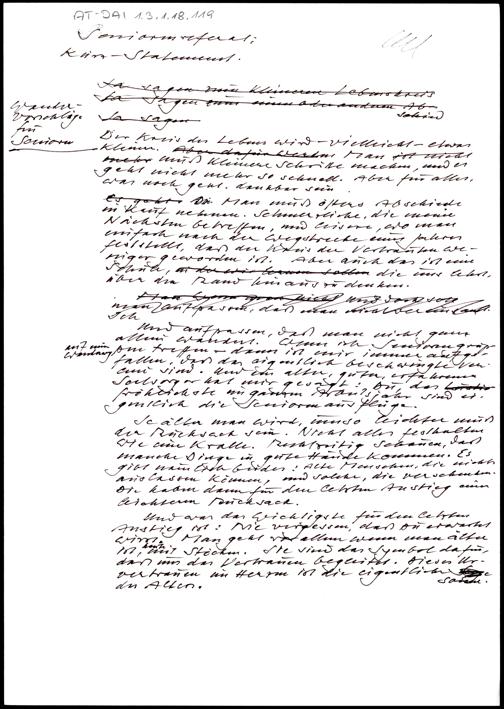 AT-DAI 1.3.1.18.119
Seniorenreferat;
Kurz-Statement.
Ja sagen zum kleineren Lebenskreis
Ja sagen zum einen oder anderen Ab-
schied
Ja sagen
Wander-
vorschläge
für
Senioren
Der Kreis des Lebens wird - vielleicht - etwas
kleiner. Man ist nicht
mehr muß kleinere Schritte machen, und es
geht nicht mehr so schnell. Aber für alles,
was noch geht, dankbar sein.
Man muß öfters Abschiede
in Kauf nehmen. Schmerzliche, die meine
Nächsten betreffen, und leisere, wo man
einfach nach der Wegstrecke eines Jahres
feststellt, daß der Kreis der Vertrauten we-
niger geworden ist. Aber auch das ist eine
Schule, die uns lehrt,
über den Rand hinaus zu denken.
Und
man aufpassen, daß man nicht
Ich
Und aufpassen, daß man nicht ganz
allein wandert. Wenn ich Seniorengrup-
pen treffe - dann ist mir immer aufge-
auf einer
Wanderung
fallen, daß das eigentlich beschwingte Ver-
eine sind. Und ein alter, guter, erfahrener
Seelsorger hat mir gesagt: Du, das
fröhlichste im ganzen Arbeitsjahr sind ei-
gentlich die Seniorenausflüge.
Je älter man wird, umso leichter muß
der Rucksack sein. Nicht alles festhalten
wie eine Kralle. Rechtzeitig schauen, daß
manche Dinge in gute Hände kommen. Es
gibt nämlich beides: Alte Menschen, die nichts
auslassen können, und solche, die verschenken.
Die haben dann für den letzten Anstieg einen
leichteren Rucksack.
Und was das Wichtigste für den letzten
Anstieg ist: Nie vergessen, daß Du erwartet
wirst. Man geht vor allem wenn man älter
ist, mit Stöcken. Sie sind das Symbol dafür,
daß uns das Vertrauen begleitet. Dieses Ur-
vertrauen im Herrn ist die eigentliche
des Alters.